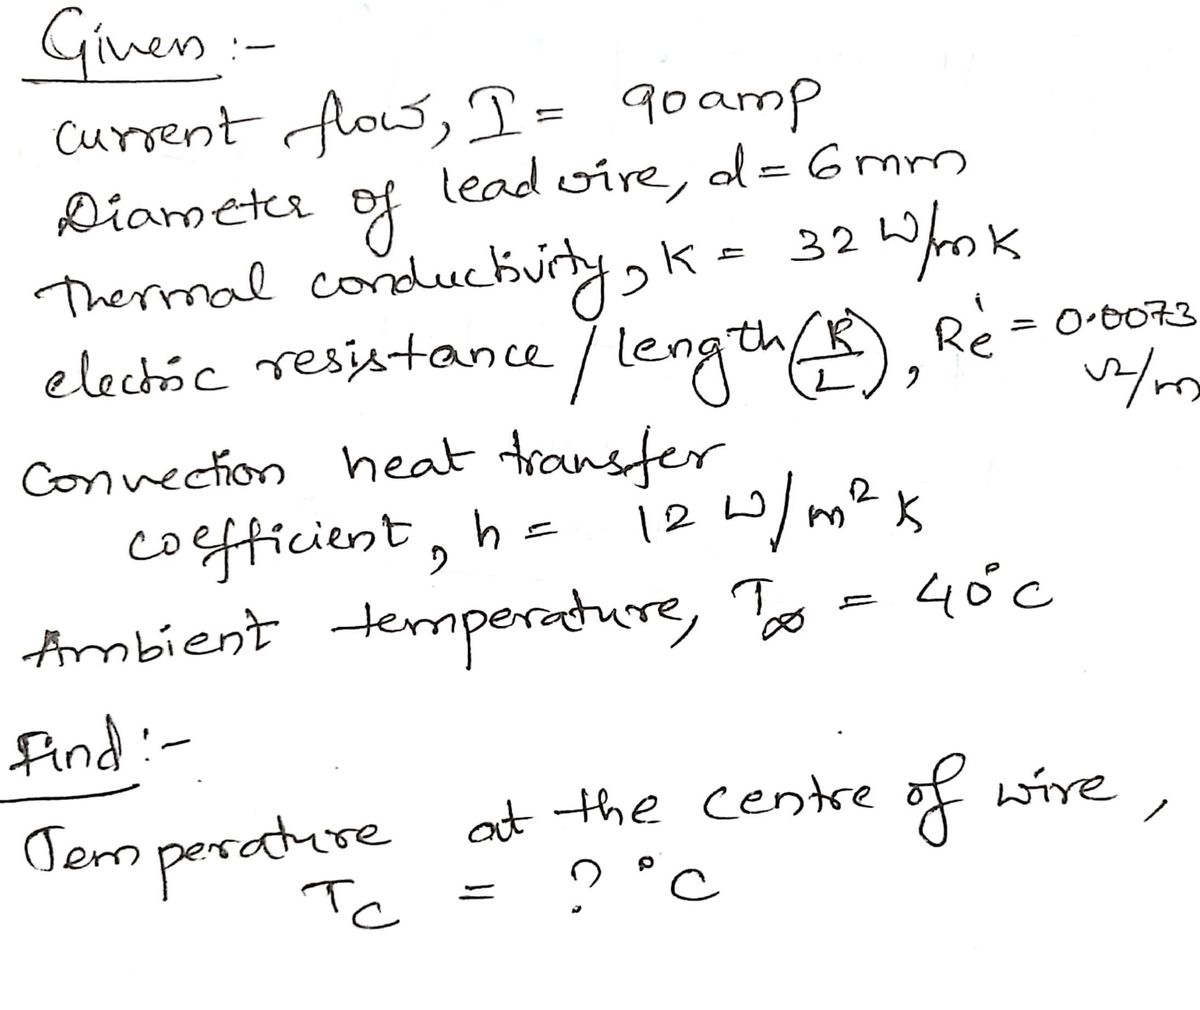 Given :-
current flow, I = 90 amp
Diameter of lead wire, d = 6 mm
Thermal conductivity, K = 32 W/mK
electric resistance / length (R/L), Re' = 0.0073 Ω/m
Convection heat transfer
coefficient, h = 12 W/m² K
Ambient temperature, T∞ = 40°C
Find :-
Temperature at the centre of wire,
Tc = ? °C